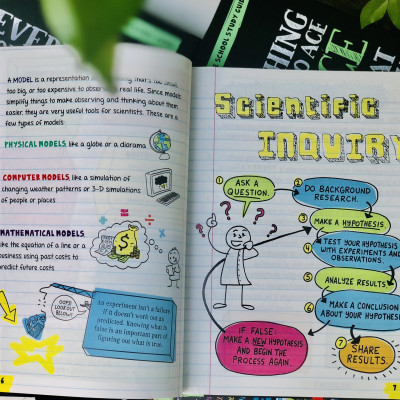 SCHOOL STUDY GUIDE
A MODEL is a representation
too big, or too expensive to observe in real life. Since models
simplify things to make observing and thinking about them
easier, they are very useful tools for scientists. These are a
few types of models:
PHYSICAL MODELS, like a globe or a diorama
COMPUTER MODELS, like a simulation of
changing weather patterns or 3-D simulations
of people or places
MATHEMATICAL MODELS,
like the equation of a line or a
business using past costs to
predict future costs
$
OOPS!
LOOK OUT
BELOW!
An experiment isn't a failure
if it doesn't work out as
predicted. Knowing what is
false is an important part of
figuring out what is true.
6
Scientific
INQUIRY
1 ASK A
QUESTION.
2 DO BACKGROUND
RESEARCH.
3 MAKE A HYPOTHESIS.
4 TEST YOUR HYPOTHESIS
WITH EXPERIMENTS AND
OBSERVATIONS.
5 ANALYZE RESULTS
6 MAKE A CONCLUSION
ABOUT YOUR HYPOTHESIS
IF FALSE:
MAKE A NEW HYPOTHESIS
AND BEGIN THE
PROCESS AGAIN.
7 SHARE
RESULTS.
7